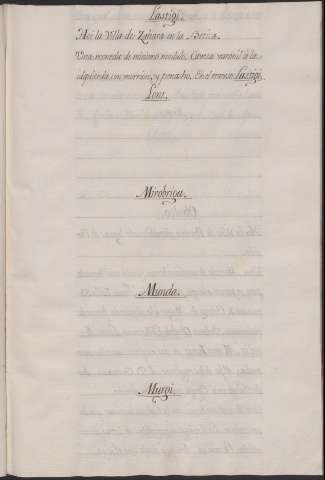 Lastigi.
Hoi la Villa de Zahara en la Betica.
Una moneda de minimo modulo. Caveza varonil á la
izquierda con murrion, y penacho. En el reverso Lastigi.
Lont.
Mirobriga.
Munda.
Murgi.